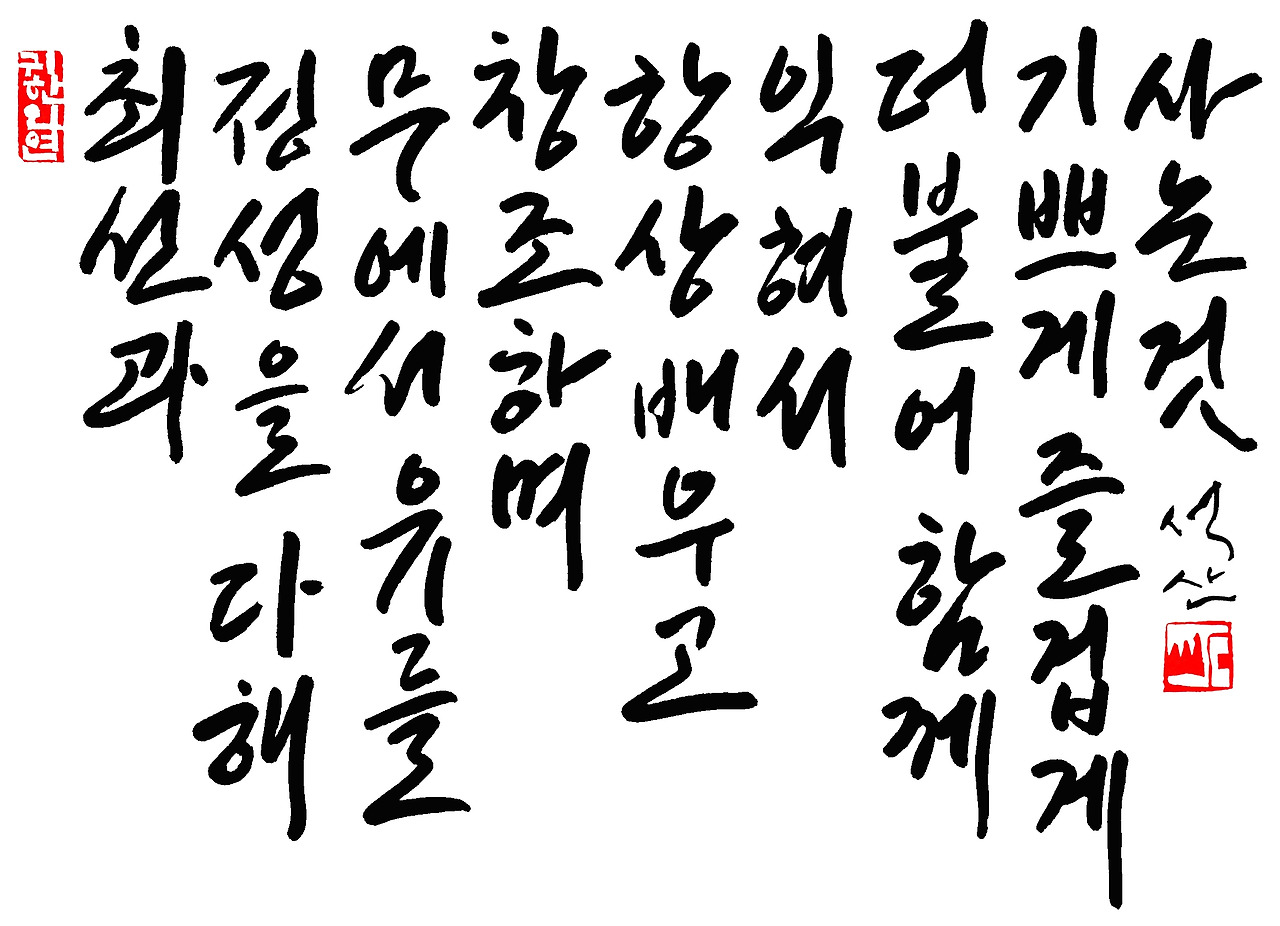 최선과
정성을 다해
무에서 유를
창조하며
항상 배우고
익혀서
더불어 함께
기쁘게 즐겁게
사는것
석산